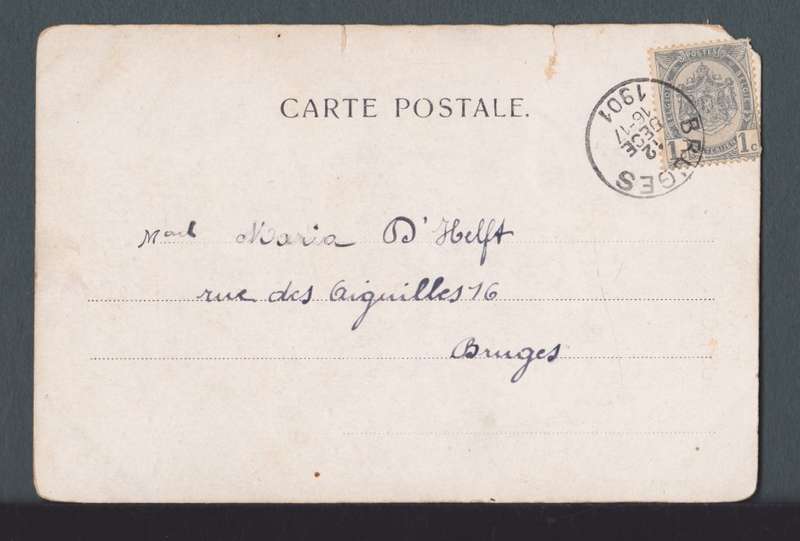 CARTE POSTALE.
BRUGES
12
DECE
16-17
1901
POSTES
1 1c
Mad Maria D'Helft
rue des Aiguilles 16
Bruges